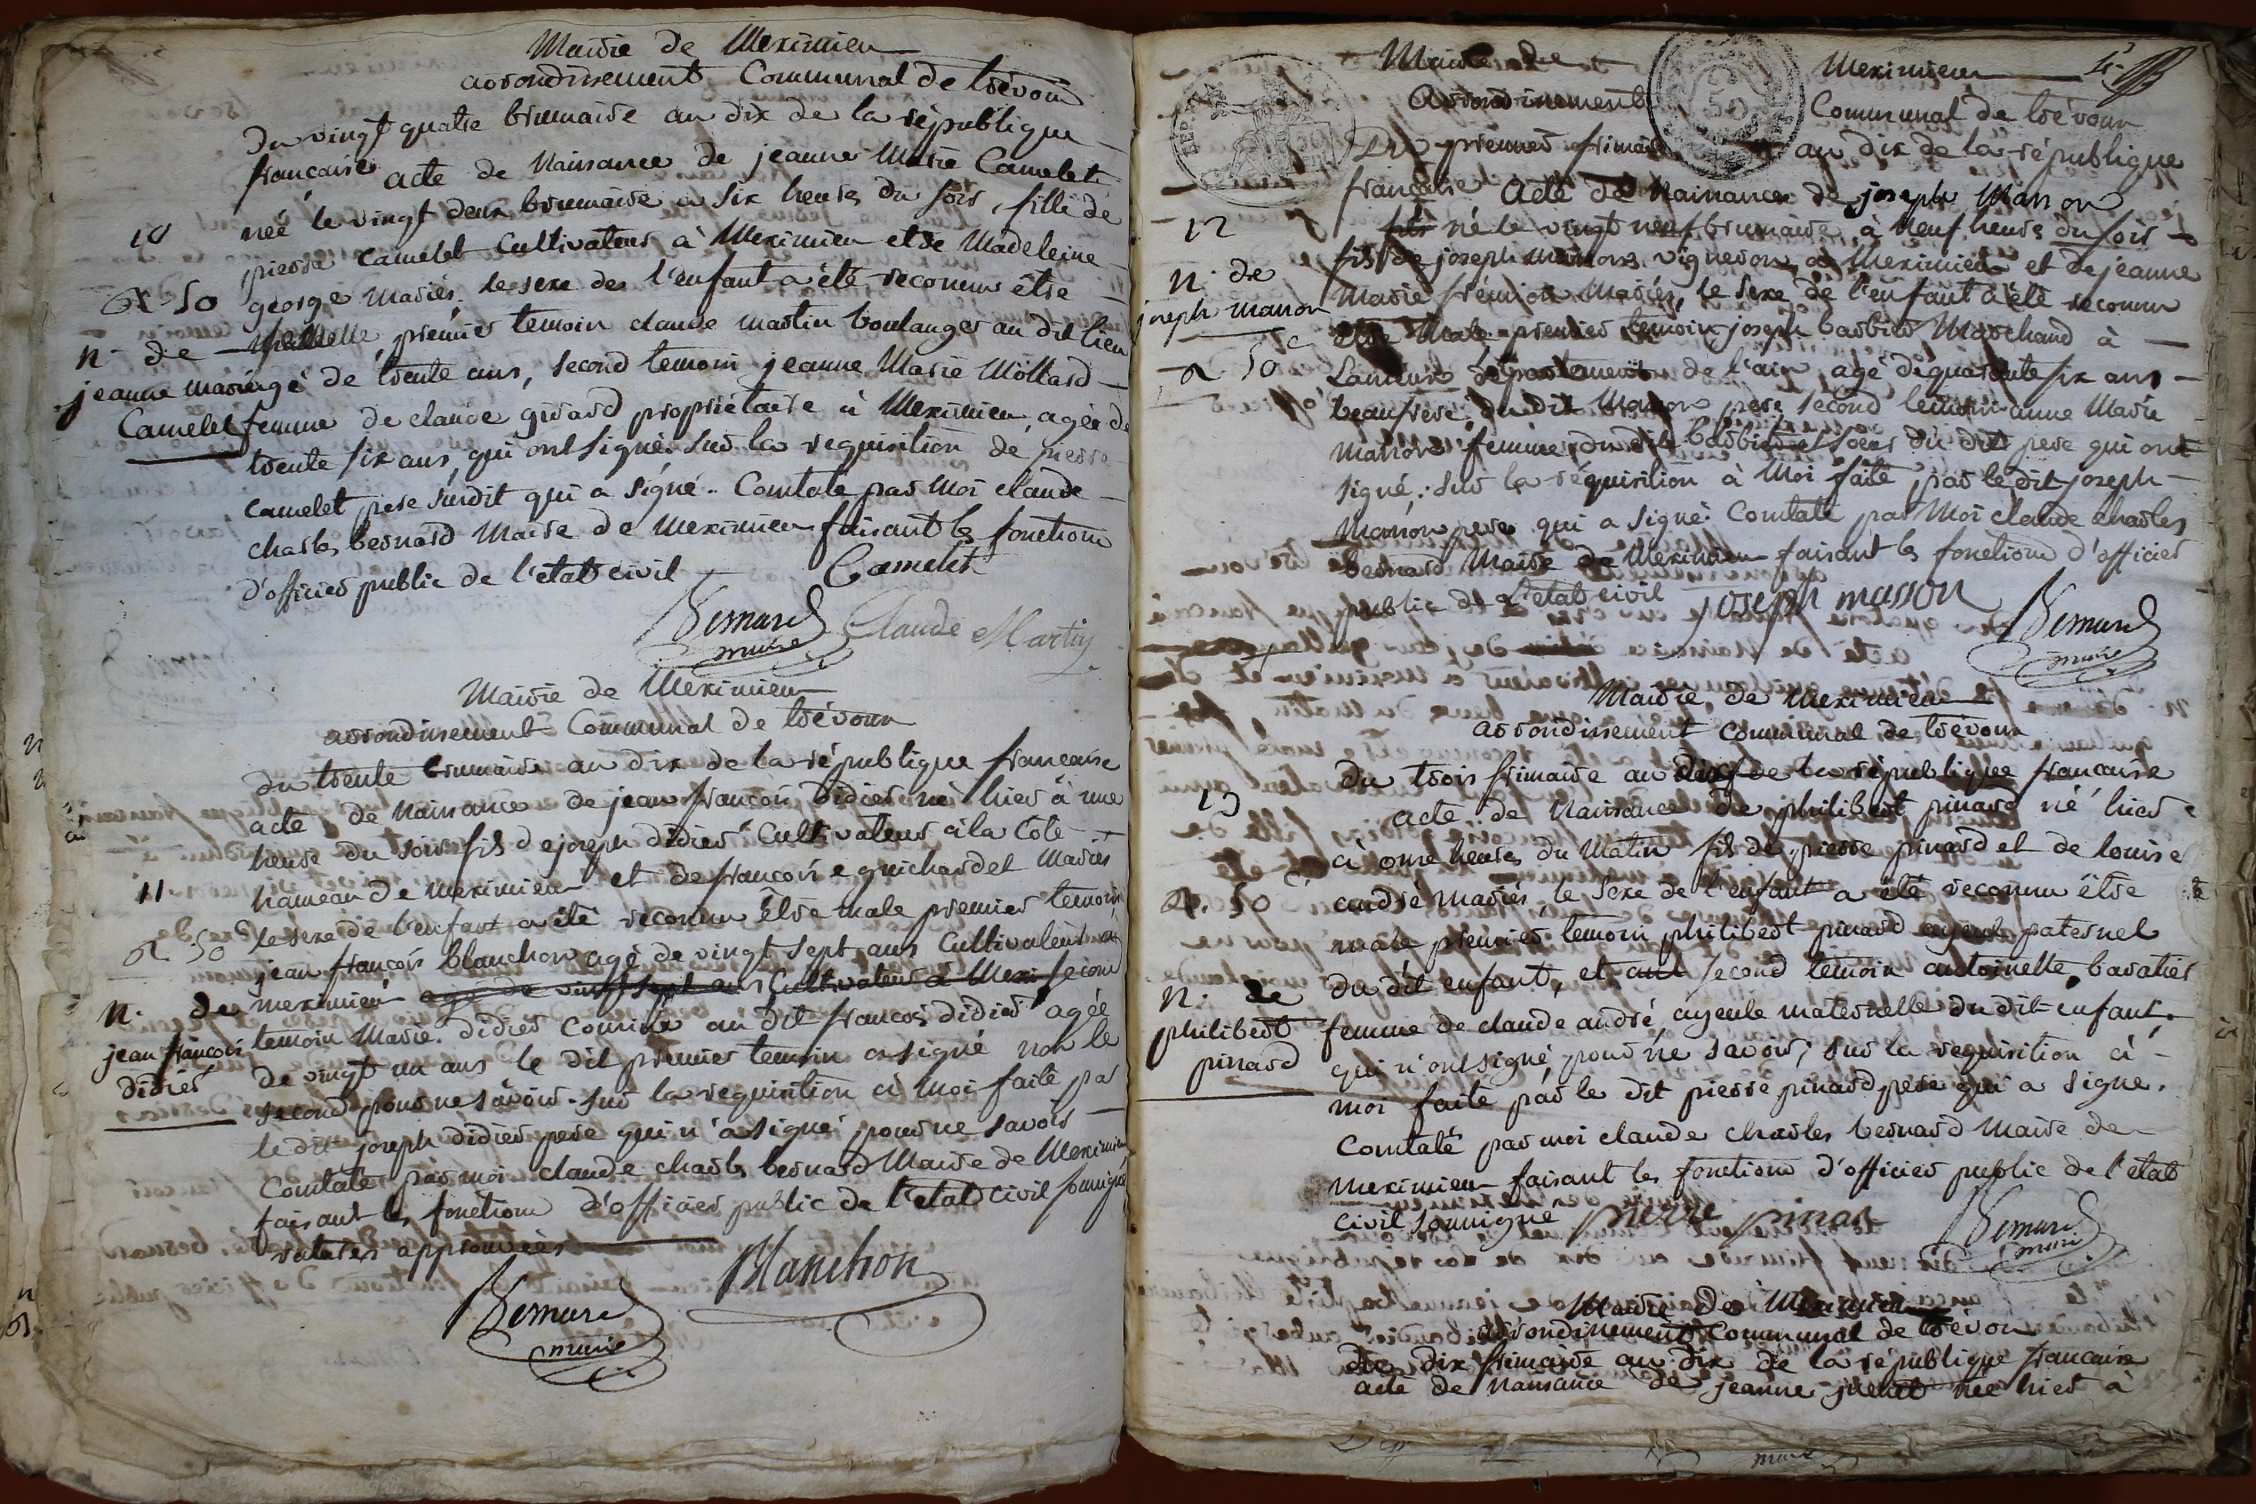 Mairie de Meximieu
arrondissement Communal de trévoux
du vingt quatre brumaire an dix de la république
française acte de Naissance de jeanne Marie Camelet
née le vingt deux brumaire a six heures du soir, fille de
10
pierre Camelet Cultivateur à Meximieu et de Madeleine
george mariés. le sexe de l'enfant a été reconnu être
N. de
femelle, premier temoin claude martin boulanger au dit lieu
jeanne marie
agé de trente ans, second temoin jeanne Marie Mollard
Camelet
femme de claude girard propriétaire à Meximieu, agée de
trente six ans, qui ont signé. Sur la requisition de pierre
Camelet pere susdit qui a signé. Constaté par Moi claude
charles bernard Maire de Meximieu faisant les fonctions
d'officier public de l'etat civil Camelet
Bernard Claude Martin
maire
Mairie de Meximieu
arrondissement Communal de trévoux
du trente brumaire an dix de la république francaise
acte de Naissance de jean françois Didier né hier à une
heure du soir fils de joseph didier Cultivateur à la Cote
11
hameau de meximieu et de françoise guichardet Mariés
le sexe de l'enfant a été reconnu être male premier temoin
jean françois blanchon agé de vingt sept ans Cultivateur à
N. de
meximieu agé de vingt sept ans Cultivateur à Mexi second
jean françois
temoin Marie didier Cousine au dit francois didier agée
didier
de vingt un ans le dit premier temoin a signé non le
second pour ne savoir. sur la requisition à moi faite par
le dit joseph didier pere qui n'a signé pour ne savoir
Constaté par moi claude charles bernard Maire de Meximieu
faisant les fonctions d'officier public de l'etat civil soussigné
ratures approuvées
Blanchon
Bernard
maire
Mairie de Meximieu
Arrondissement Communal de trévoux
Du premier frimaire an dix de la république
française Acte de Naissance de joseph Masson
12
fils né le vingt neuf brumaire à Neuf heures du soir
N. de
fils de joseph Masson vigneron à Meximieu et de jeanne
joseph masson
Marie frémion Mariés, le sexe de l'enfant a été reconnu
être Male premier temoin joseph barbier Marchand à
département de l'ain, agé de quarante six ans
beaufrère du dit Masson pere second temoin anne Marie
Masson femme du dit barbier et soeur du dit pere qui ont
signé. sur la réquisition à Moi faite, par le dit joseph
Masson pere qui a signé. Constaté par Moi claude charles
bernard Maire de Meximieu faisant les fonctions d'officier
public de l'etat civil joseph masson
Bernard
maire
Mairie de Meximieu
arrondissement communal de trévoux
du trois frimaire an dix de la république francaise
13
acte de Naissance de philibert pinard né hier
à onze heures du Matin fils de pierre pinard et de louise
andré mariés, le sexe de l'enfant a été reconnu être
male premier temoin philibert pinard ayeul paternel
N. de
du dit enfant, et ant second temoin antoinette baratier
philibert
femme de claude andré, ayeule maternelle du dit enfant
pinard
qui n'ont signé, pour ne savoir, sur la requisition à
moi faite par le dit pierre pinard pere qui a signé.
Constaté par moi claude charles bernard Maire de
meximieu faisant les fonctions d'officier public de l'etat
civil soussigné pierre pinar
Bernard
maire
Mairie de Meximieu
arrondissement Communal de trévoux
du dix frimaire an dix de la république francaise
acte de Naissance de jeanne née hier à